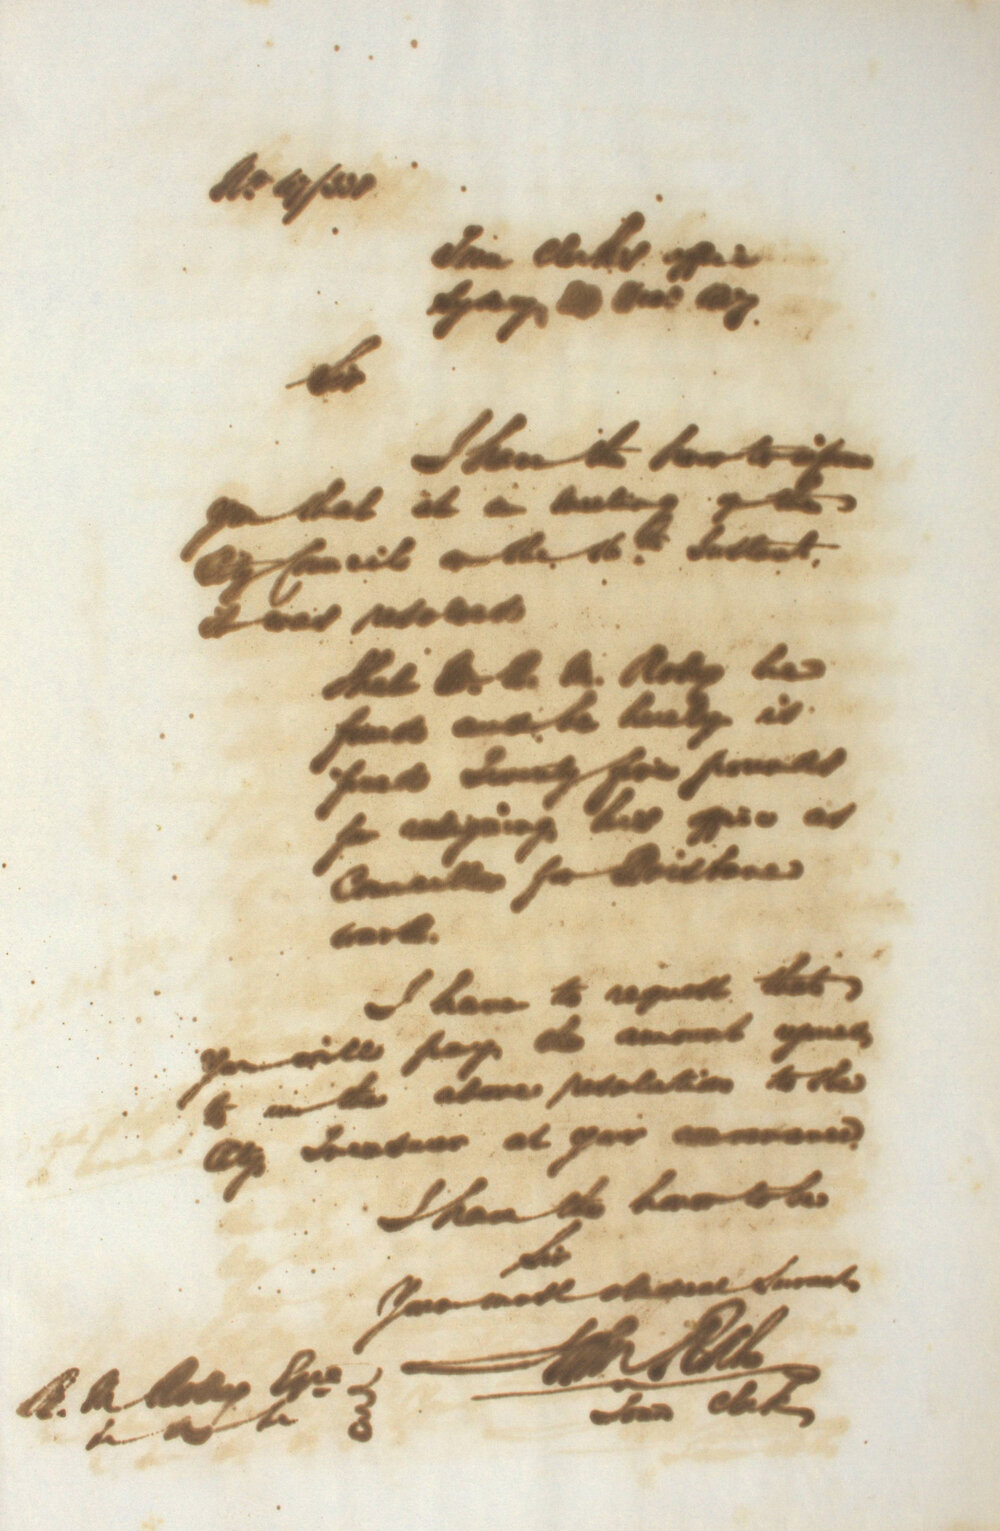 Town Clerk's office
Sydney
Sir
I have the honor to inform
you that at a meeting of the
City Council on the 16th Instant.
it was resolved
that Mr. R. M. Robey be
fined and he hereby is
fined Twenty five pounds
for resigning his office as
Councillor for Brisbane
ward.
I have to request that
you will pay the amount
to in the above resolution to the
City Treasurer at your convenience.
I have the honor to be
Sir
Your most obedient Servant
Town Clerk
R. M. Robey Esqre